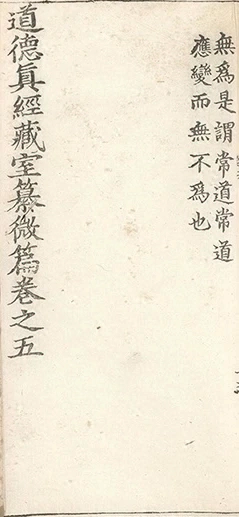 無爲是謂常道常道
應變而無不爲也
道德眞經藏室纂微篇卷之五